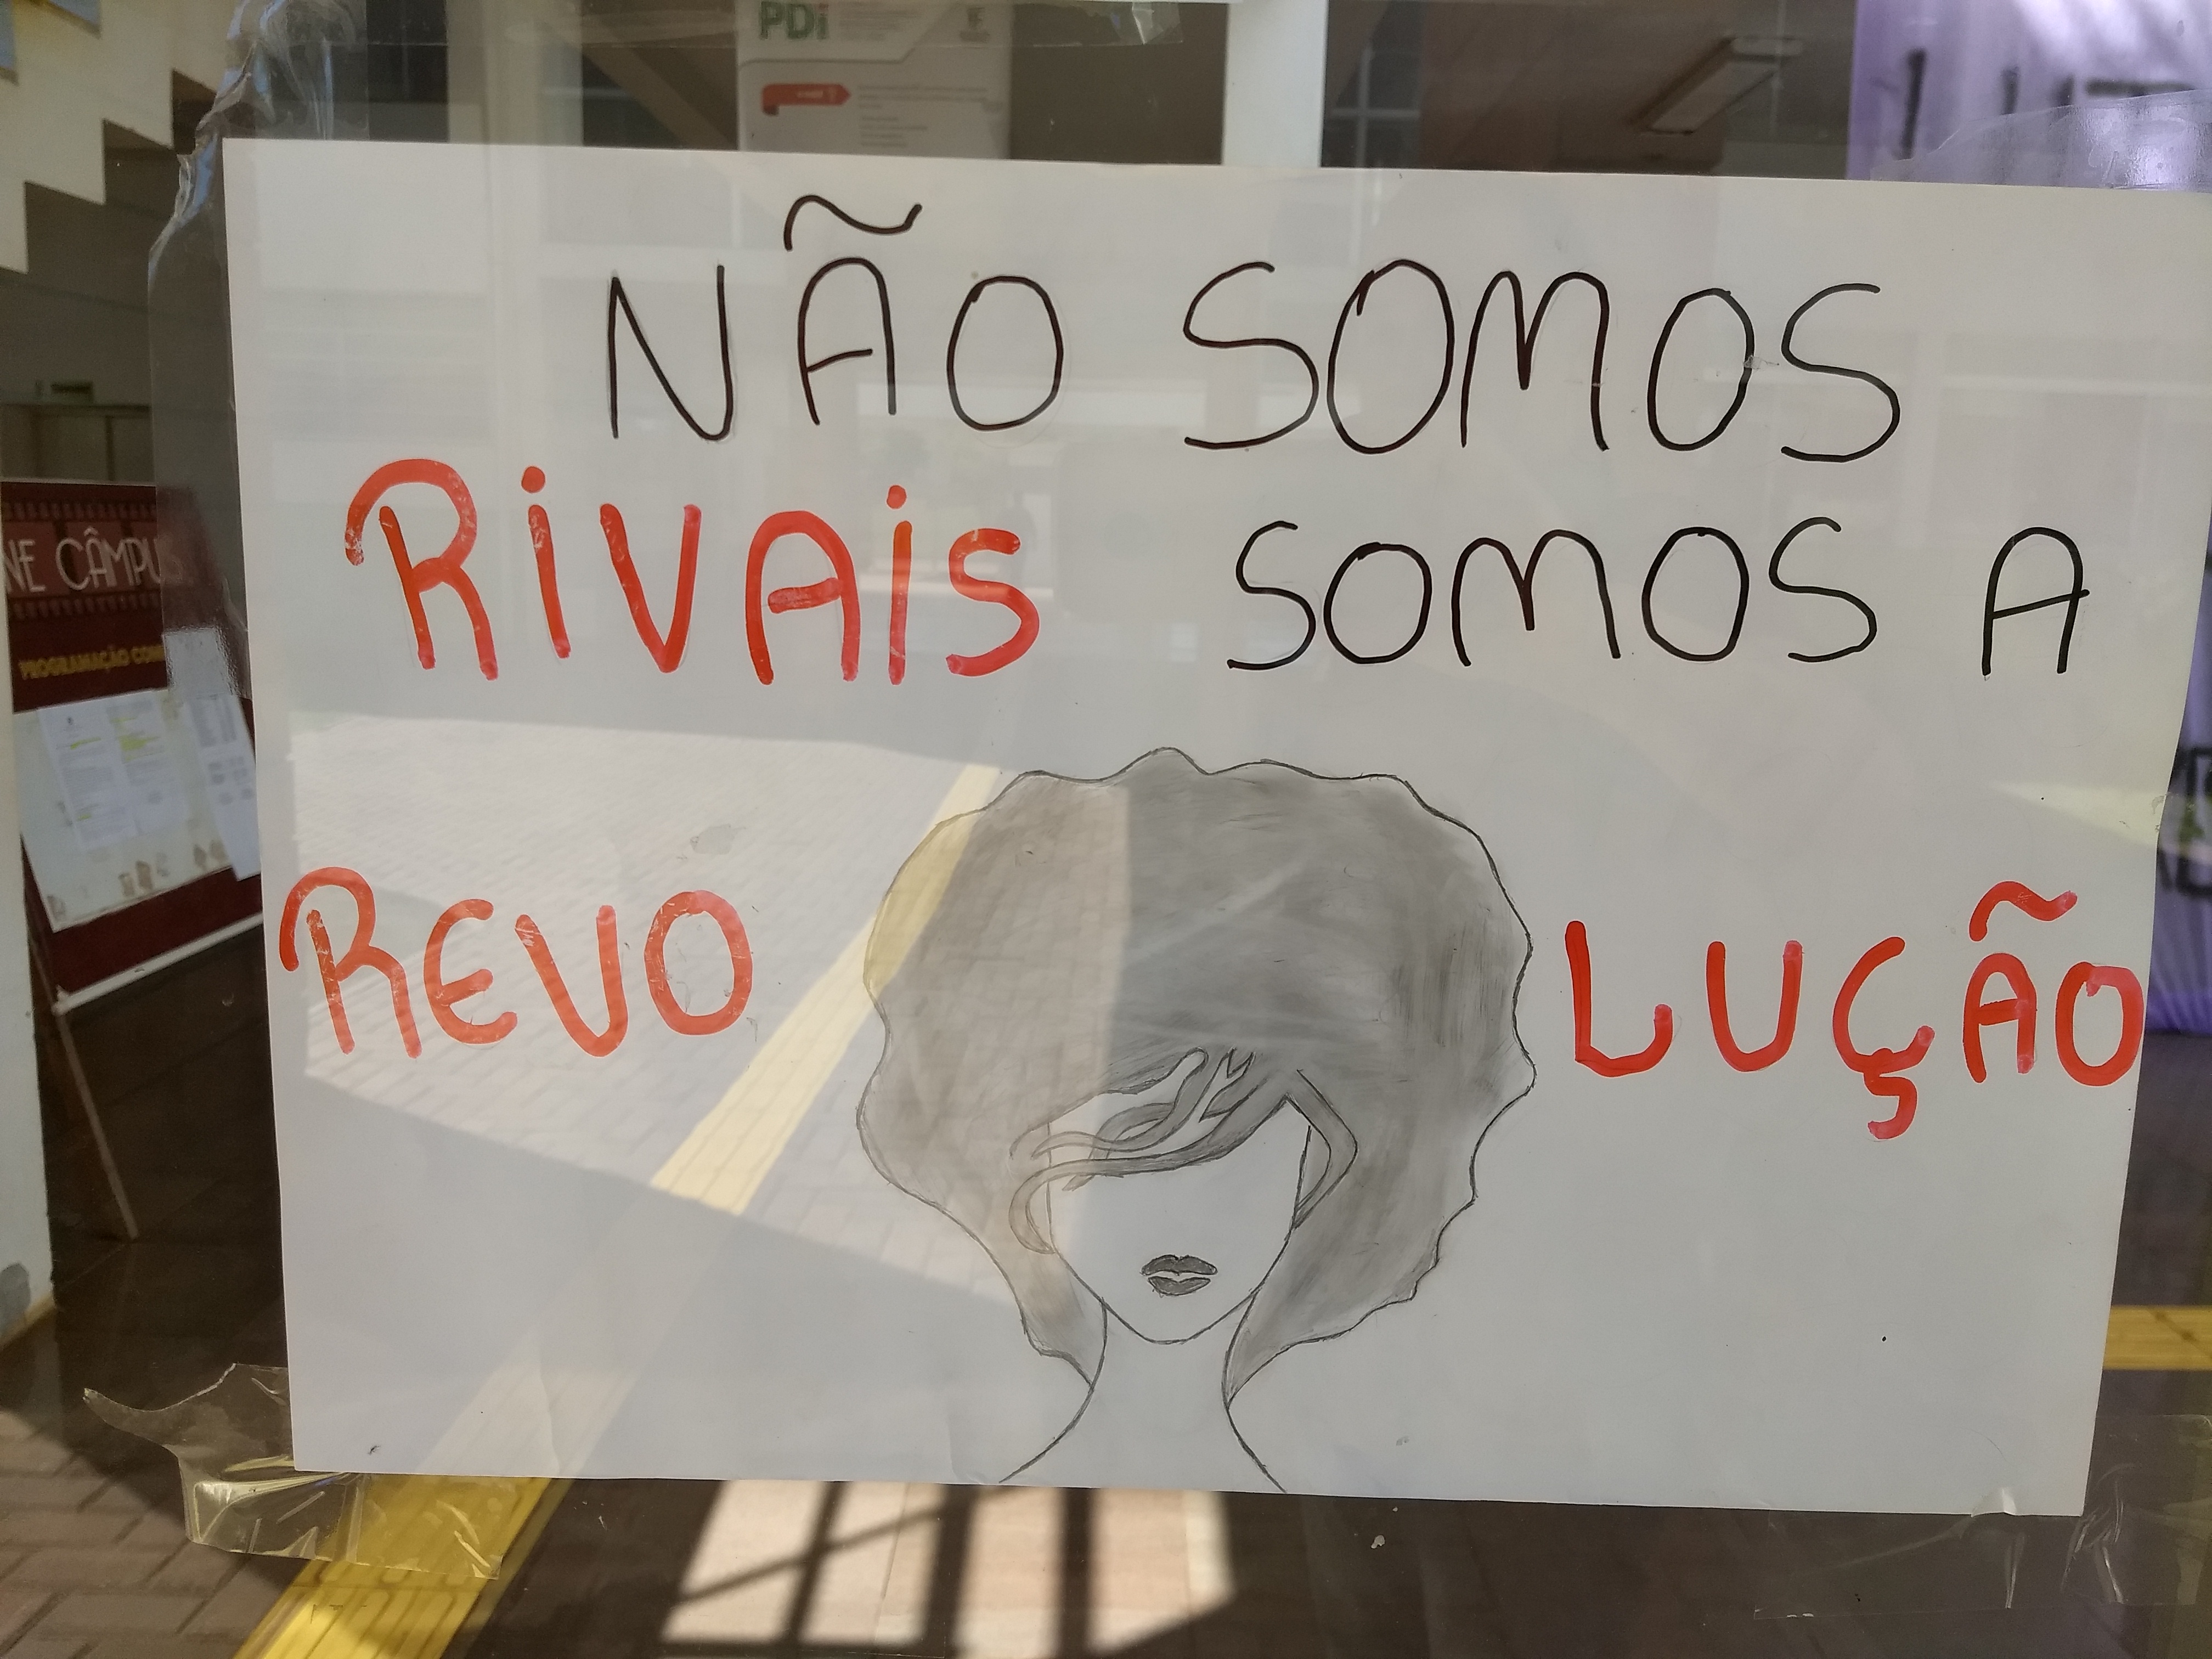 PDi
NÃO SOMOS
RIVAIS SOMOS A
REVO LUÇÃO
NE CÂMPUS
PROGRAMAÇÃO